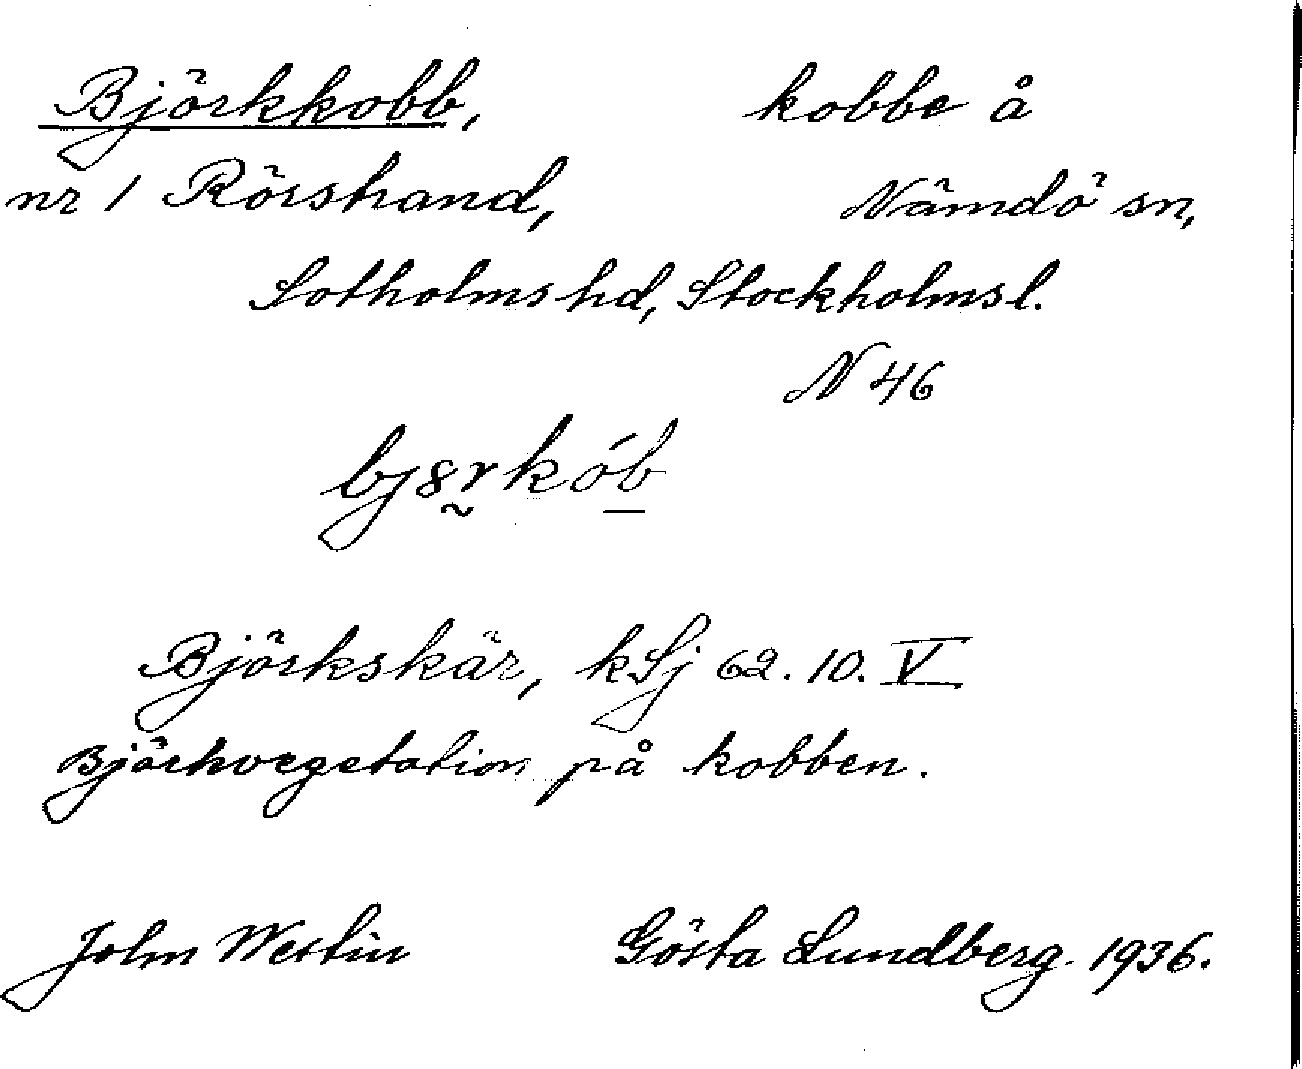 Björkkobb, kobbe å
nr 1 Rörstrand, Nämdö sn,
Sotholms hd, Stockholms l.
N 46
Björkskär, kSj 62. 10. V
Björkvegetation på kobben.
John Westin Gösta Lundberg. 1936.